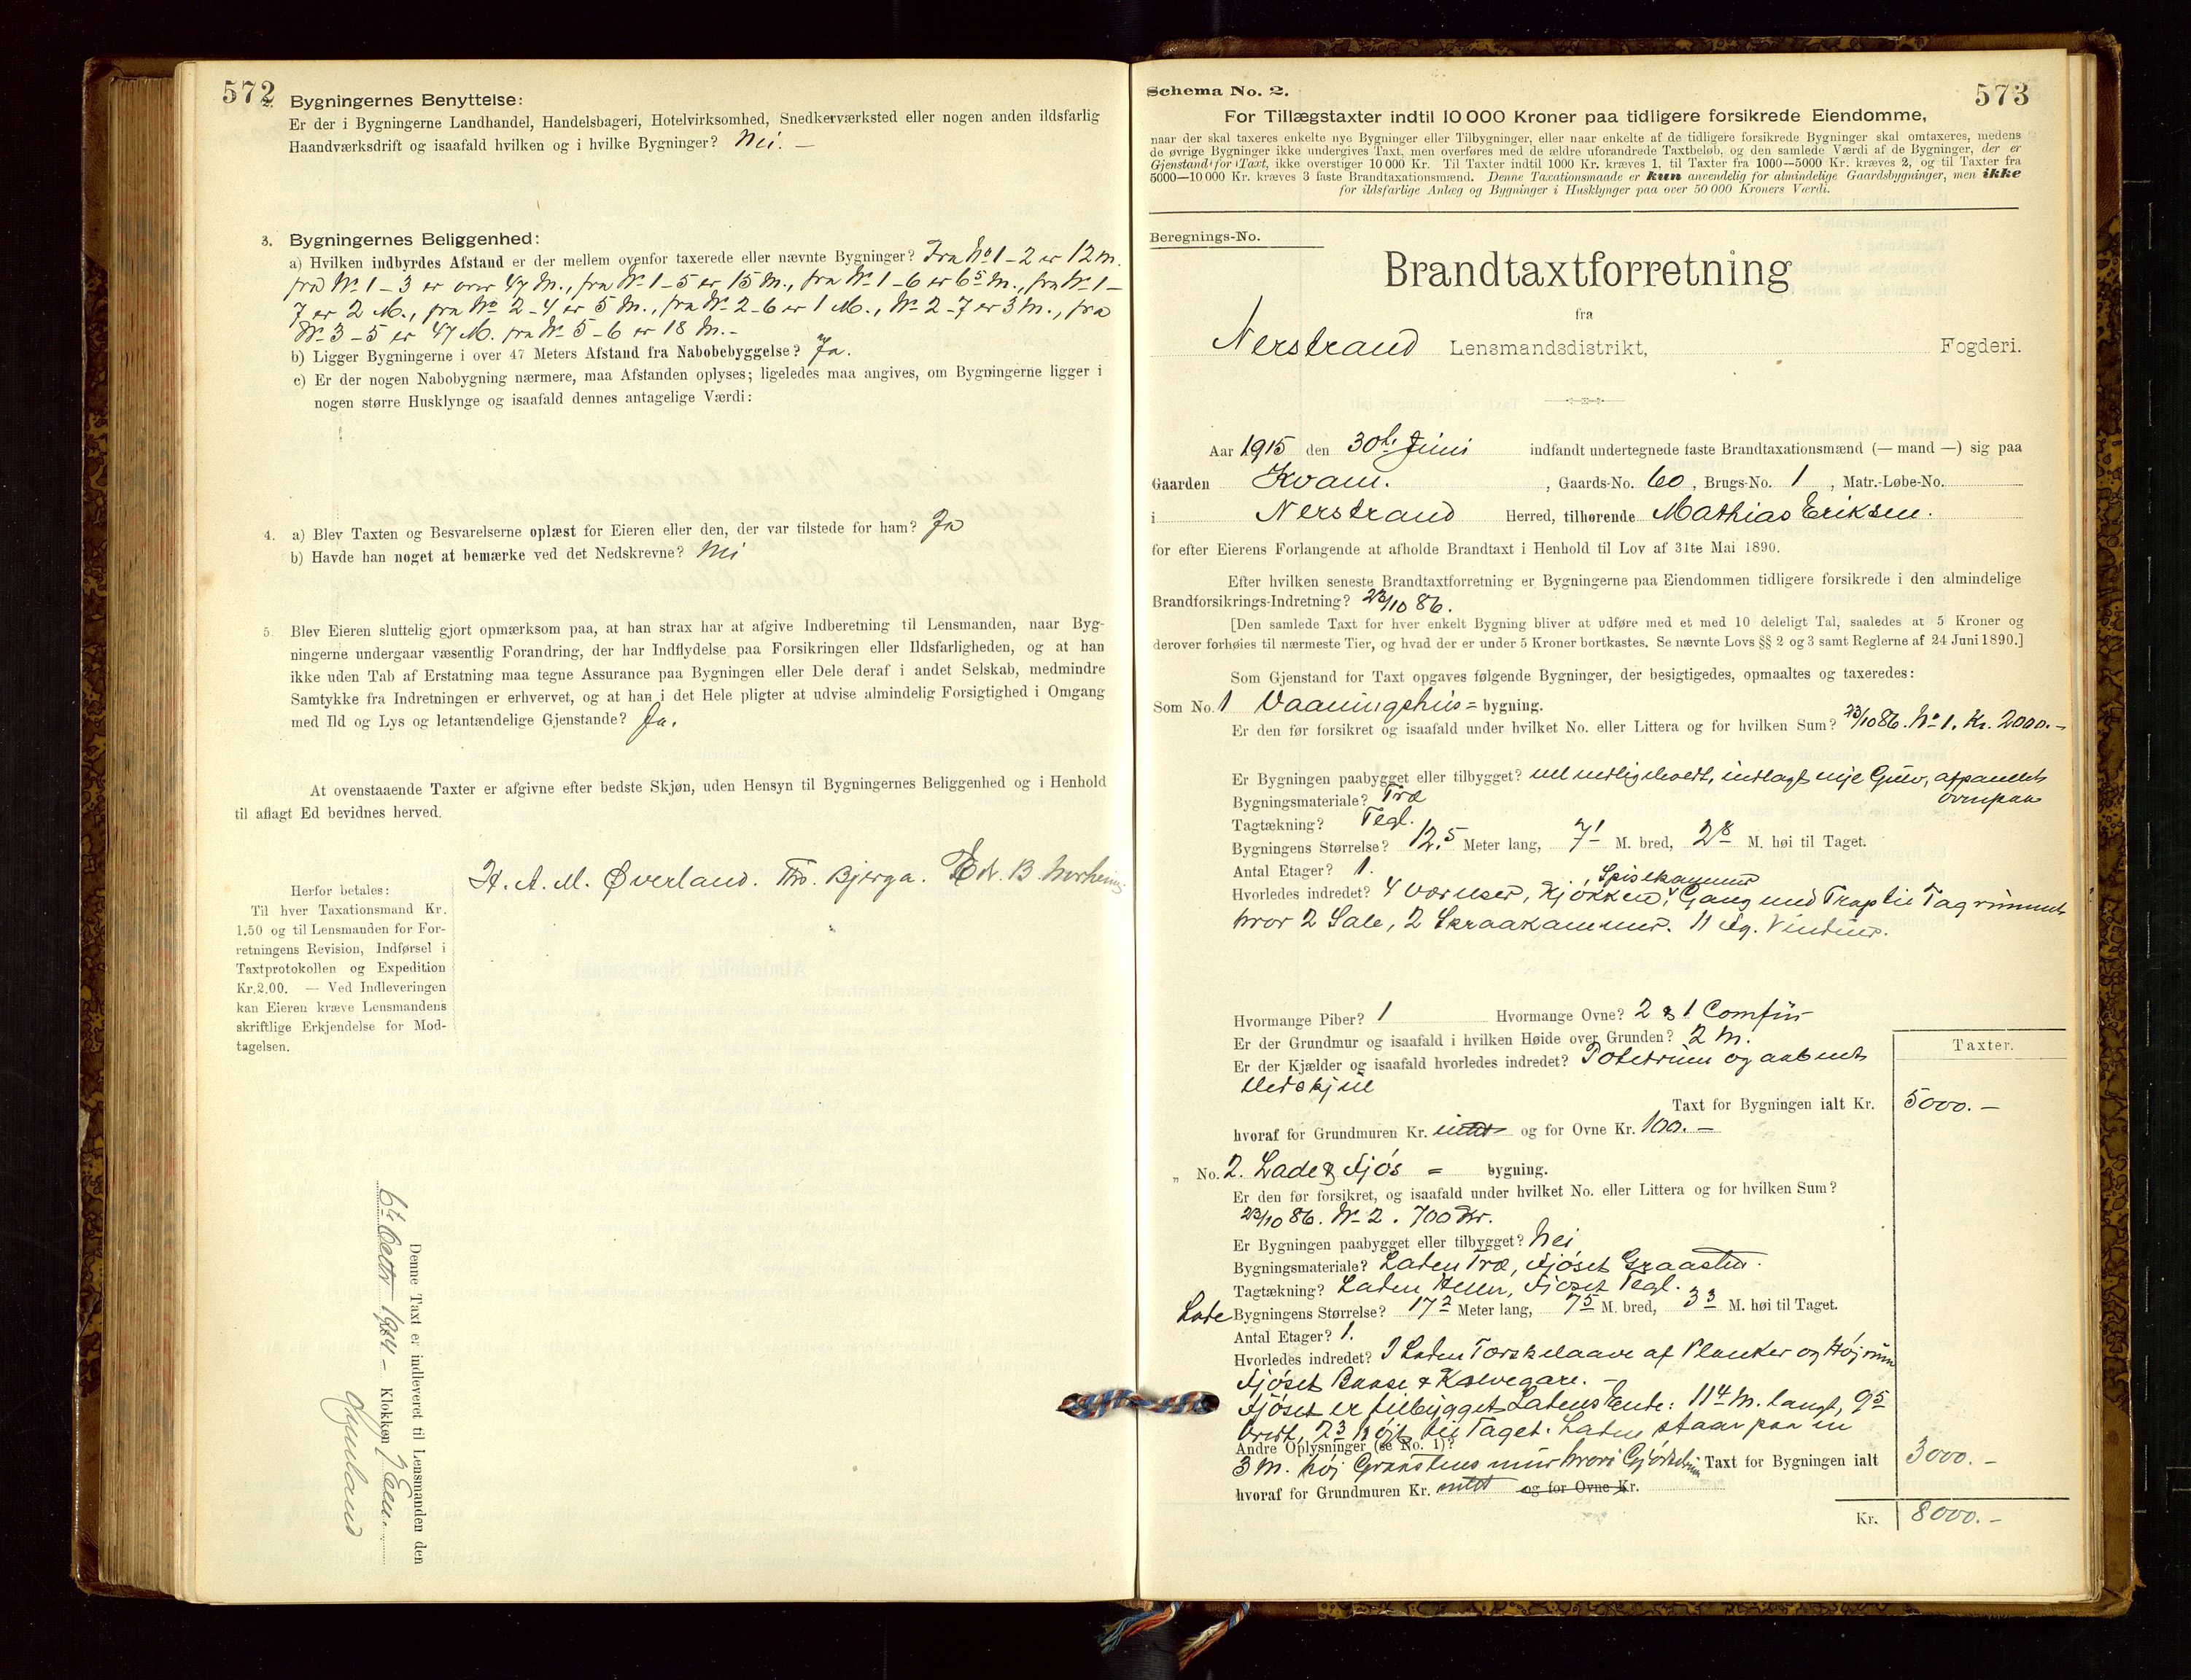 572
2. Bygningernes Benyttelse:
Er der i Bygningerne Landhandel, Handelsbageri, Hotelvirksomhed, Snedkerværksted eller nogen anden ildsfarlig
Haandværksdrift og isaafald hvilken og i hvilke Bygninger? Nei. —
3. Bygningernes Beliggenhed:
a) Hvilken indbyrdes Afstand er der mellem ovenfor taxerede eller nævnte Bygninger? Fra No 1 - 2 er 12 m.
fra No 1 - 3 er over 47 M., fra No 1 - 5 er 15 M., fra No 1 - 6 er 6⁵ M., fra No 1 -
7 er 2 M., fra No 2 - 4 er 5 M., fra No 2 - 6 er 1 M., No 2 - 7 er 3 M., fra
No 3 - 5 er 47 M. fra No 5 - 6 er 18 M. -
b) Ligger Bygningerne i over 47 Meters Afstand fra Nabobebyggelse? Ja.
c) Er der nogen Nabobygning nærmere, maa Afstanden oplyses; ligeledes maa angives, om Bygningerne ligger i
nogen større Husklynge og isaafald dennes antagelige Værdi:
4. a) Blev Taxten og Besvarelserne oplæst for Eieren eller den, der var tilstede for ham? Ja
b) Havde han noget at bemærke ved det Nedskrevne? Nei
5. Blev Eieren sluttelig gjort opmærksom paa, at han strax har at afgive Indberetning til Lensmanden, naar Byg-
ningerne undergaar væsentlig Forandring, der har Indflydelse paa Forsikringen eller Ildsfarligheden, og at han
ikke uden Tab af Erstatning maa tegne Assurance paa Bygningen eller Dele deraf i andet Selskab, medmindre
Samtykke fra Indretningen er erhvervet, og at han i det Hele pligter at udvise almindelig Forsigtighed i Omgang
med Ild og Lys og letantændelige Gjenstande? Ja.
At ovenstaaende Taxter er afgivne efter bedste Skjøn, uden Hensyn til Bygningernes Beliggenhed og i Henhold
til aflagt Ed bevidnes herved.
H. A. M. Øverland. Tho. Bjerga. Edv. B. Norheim
Herfor betales:
Til hver Taxationsmand Kr.
1.50 og til Lensmanden for For-
retningens Revision, Indførsel i
Taxtprotokollen og Expedition
Kr. 2.00. — Ved Indleveringen
kan Eieren kræve Lensmandens
skriftlige Erkjendelse for Mod-
tagelsen.
Denne Taxt er indleveret til Lensmanden den
6te 1914 - Klokken 7 Em.
573
Schema No. 2.
For Tillægstaxter indtil 10 000 Kroner paa tidligere forsikrede Eiendomme,
naar der skal taxeres enkelte nye Bygninger eller Tilbygninger, eller naar enkelte af de tidligere forsikrede Bygninger skal omtaxeres, medens
de øvrige Bygninger ikke undergives Taxt, men overføres med de ældre uforandrede Taxtbeløb, og den samlede Værdi af de Bygninger, der er
Gjenstand for Taxt, ikke overstiger 10 000 Kr. Til Taxter indtil 1000 Kr. kræves 1, til Taxter fra 1000—5000 Kr. kræves 2, og til Taxter fra
5000—10 000 Kr. kræves 3 faste Brandtaxationsmænd. Denne Taxationsmaade er kun anvendelig for almindelige Gaardsbygninger, men ikke
for ildsfarlige Anlæg og Bygninger i Husklynger paa over 50 000 Kroners Værdi.
Beregnings-No.
Brandtaxtforretning
fra
Nerstrand Lensmandsdistrikt, Fogderi.
Aar 1915 den 30te Juni indfandt undertegnede faste Brandtaxationsmænd (— mand —) sig paa
Gaarden Kvam. , Gaards-No. 60, Brugs-No. 1, Matr.-Løbe-No.
i Nerstrand Herred, tilhørende Mathias Eriksen.
for efter Eierens Forlangende at afholde Brandtaxt i Henhold til Lov af 31te Mai 1890.
Efter hvilken seneste Brandtaxtforretning er Bygningerne paa Eiendommen tidligere forsikrede i den almindelige
Brandforsikrings-Indretning? 23/10 86.
[Den samlede Taxt for hver enkelt Bygning bliver at udføre med et med 10 deleligt Tal, saaledes at 5 Kroner og
derover forhøies til nærmeste Tier, og hvad der er under 5 Kroner bortkastes. Se nævnte Lovs §§ 2 og 3 samt Reglerne af 24 Juni 1890.]
Som Gjenstand for Taxt opgaves følgende Bygninger, der besigtigedes, opmaaltes og taxeredes:
Som No. 1 Vaaningshus = bygning.
Er den før forsikret og isaafald under hvilket No. eller Littera og for hvilken Sum? 23/10 86. No 1. Kr. 2000.-
Er Bygningen paabygget eller tilbygget? vel vedligeholdt, indlagt nye Gulv, afpanelet
ovenpaa
Bygningsmateriale? Træ
Tagtækning? Tegl.
Bygningens Størrelse? 12.⁵ Meter lang, 7¹ M. bred, 2⁸ M. høi til Taget.
Antal Etager? 1.
Hvorledes indredet? 4 Værelser, Kjøkken, Spisekammer, Gang med Trap til Tagrummet
hvor 2 Sale, 2 Skraakammer. 11 Fg. Vinduer.
Hvormange Piber? 1 Hvormange Ovne? 2 & 1 Comfur
Er der Grundmur og isaafald i hvilken Høide over Grunden? 2 M.
Er der Kjælder og isaafald hvorledes indredet? Potetrum og aabent
Vedskjul
Taxter.
Taxt for Bygningen ialt Kr. 5000.-
hvoraf for Grundmuren Kr. intet og for Ovne Kr. 100.-
„ No. 2. Lade & Fjøs = bygning.
Er den før forsikret, og isaafald under hvilket No. eller Littera og for hvilken Sum?
23/10 86. No 2. 700 Kr.
Er Bygningen paabygget eller tilbygget? Nei
Bygningsmateriale? Laden Træ, Fjøset Graasten.
Tagtækning? Laden Heller, Fjøset Tegl.
Lade Bygningens Størrelse? 17² Meter lang, 7⁵ M. bred, 3³ M. høi til Taget.
Antal Etager? 1.
Hvorledes indredet? I Laden Tørskelaave af Planker og Højrum
Fjøset Baase & Kalvegare. -
Fjøset er tilbygget Ladens Ende: 11⁴ M. langt, 9⁵
bredt, 2³ højt til Taget. Laden staar paa en
Andre Oplysninger (se No. 1)?
3 M. høj Graastens mur hvori Gjødselrum Taxt for Bygningen ialt 3000.-
hvoraf for Grundmuren Kr. intet og for Ovne Kr.
Kr. 8000.-